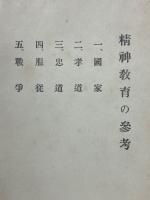 精神教育の參考
一、國家
二、孝道
三、忠道
四、服從
五、戰爭